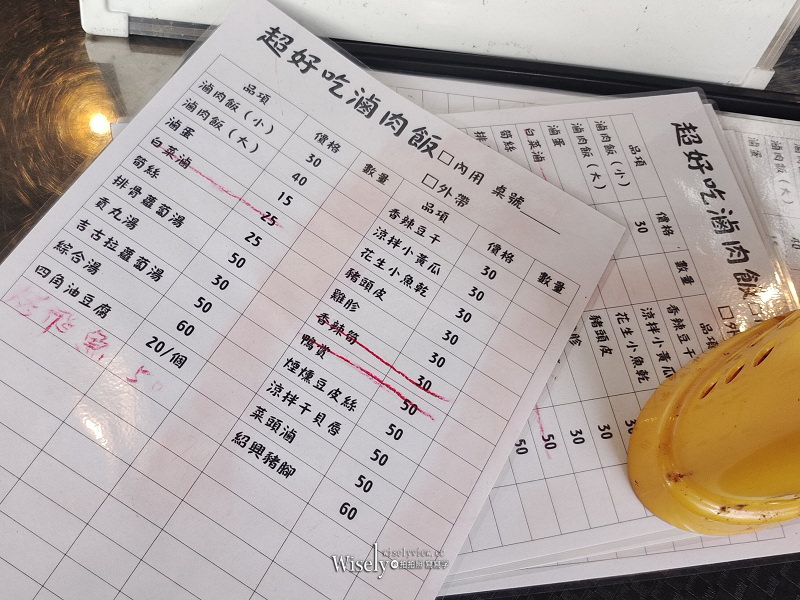 超好吃滷肉飯
□內用 桌號
□外帶
品項 價格 數量
滷肉飯(小) 30
滷肉飯(大) 40
滷蛋 15
白菜滷 25
筍絲 25
排骨蘿蔔湯 50
貢丸湯 30
吉古拉蘿蔔湯 50
綜合湯 60
四角油豆腐 20/個
品項 價格 數量
香辣豆干 30
涼拌小黃瓜 30
花生小魚乾 30
豬頭皮 30
雞胗 30
香辣筍 30
鴨賞 50
煙燻豆皮絲 50
涼拌干貝唇 50
菜頭滷 50
紹興豬腳 60
超好吃滷肉飯
□外
品項 價格 數量
滷肉飯(小) 30
滷肉飯(大)
滷蛋
白菜滷
筍絲
品項
香辣豆干
涼拌小黃瓜
花生小魚乾
豬頭皮
30
30
50
50
滷肉飯(大)
滷蛋
wiselyview.cc
Wisely 拍拍照寫寫字